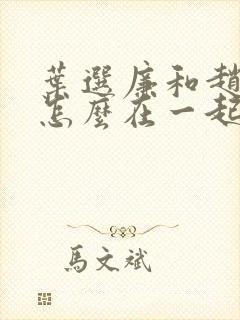 葉選廉和趙
怎麼在一起
馬文斌